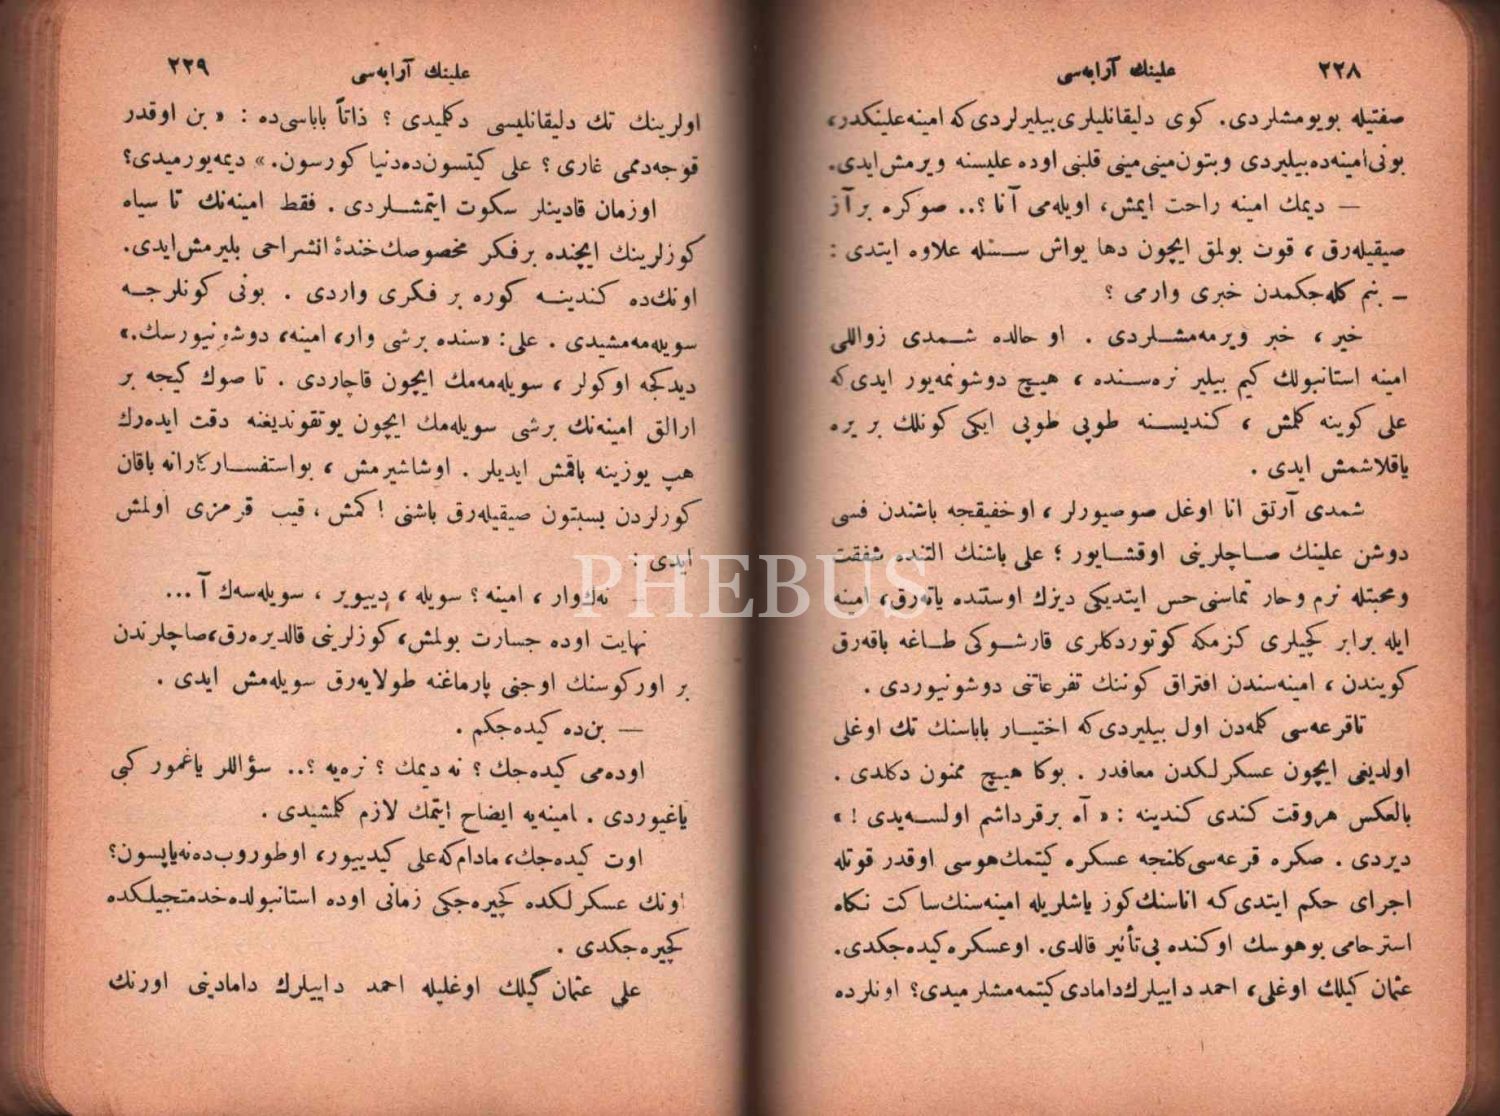 ٢٢٨ علینك آرابه‌سی
صفتیله بویومشلردی. كوی دلیقانلیلری بیلیرلردی‌كه امینه علینكدر،
بونی امینه‌ده بیلیردی وبتون مینی مینی قلبنی اوده علیسنه ویرمش ایدی.
— دیمك امینه راحت ایمش، اویله‌می آنا ؟.. صوكره برآز
صیقیله‌رق ، قوت بولمق ایچون دها یواش سسله علاوه ایتدی :
ـ بنم كله‌جكمدن خبری وارمی ؟
خیر ، خبر ویرمه‌مشلردی . او حالده شمدی زواللی
امینه استانبولك كیم بیلیر نره‌سنده ، هیچ دوشونمه‌یور ایدی‌كه
علی كوینه كلمش ، كندیسنه طوپی طوپی ایكی كونلك بر یره
یاقلاشمش ایدی .
شمدی آرتق انا اوغل صوصیورلر ، اوخفیقجه باشندن فسی
دوشن علینك صاچلرینی اوقشایور ؛ علی باشنك التنده شفقت
ومحبتله نرم وحار تماسنی حس ایتدیكی دیزك اوستنده یاته‌رق، امینه
ایله برابر كچیلری كزمكه كوتوردكلری قارشوكی طاغه باقه‌رق
كویندن ، امینه‌سندن افتراق كوننك تفرعاتنی دوشونیوردی .
تاقرعه‌سی كلمه‌دن اول بیلیردی‌كه اختیار باباسنك تك اوغلی
اولدیغی ایچون عسكرلكدن معافدر . بوكا هیچ ممنون دكلدی .
بالعكس هروقت كندی كندینه : « آه برقرداشم اولسه‌یدی ! »
دیردی . صكره قرعه‌سی كلنجه عسكره كیتمك هوسی اوقدر قوتله
اجرای حكم ایتدی‌كه اناسنك كوز یاشلریله امینه‌سنك ساكت نكاه
استرحامی بوهوسك اوكنده بی‌تأثیر قالدی. اوعسكره كیده‌جكدی.
عثمان كیلك اوغلی، احمد داییلرك دامادی كیتمه‌مشلرمیدی؟ اونلرده
٢٢٩ علینك آرابه‌سی
اولرینك تك دلیقانلیسی دكلمیدی ؟ ذاتاً باباسی‌ده : « بن اوقدر
قوجه‌دممی غاری ؟ علی كیتسون‌ده دنیا كورسون.» دیمه‌یورمیدی؟
اوزمان قادینلر سكوت ایتمشلردی . فقط امینه‌نك تا سیاه
كوزلرینك ایچنده برفكر مخصوصك خندهٔ انشراحی بلیرمش ایدی.
اونك‌ده كندینه كوره بر فكری واردی . بونی كونلرجه
سویله‌مه‌مشیدی . علی: «سنده برشی وار، امینه، دوشونیورسك.»
دیدكجه اوكولر ، سویله‌مه‌مك ایچون قاچاردی . تا صوك كیجه بر
ارالق امینه‌نك برشی سویله‌مك ایچون یوتقوندیغنه دقت ایده‌رك
هپ یوزینه باقمش ایدیلر . اوشاشیرمش ، بواستفساركارانه باقان
كوزلردن بسبتون صیقیله‌رق باشنی اكمش ، قیپ قرمزی اولمش
ایدی :
— نه‌ك‌وار ، امینه ؟ سویله ، دییویر ، سویله‌سه‌ك آ ...
نهایت اوده جسارت بولمش، كوزلرینی قالدیره‌رق، صاچلرندن
بر اوركوسنك اوجنی پارماغنه طولایه‌رق سویله‌مش ایدی .
— بن‌ده كیده‌جكم .
اوده‌می كیده‌جك ؟ نه دیمك ؟ نره‌یه ؟.. سؤاللر یاغمور كبی
یاغیوردی . امینه‌یه ایضاح ایتمك لازم كلمشیدی .
اوت كیده‌جك، مادام‌كه علی كیدییور، اوطوروب‌ده نه‌یاپسون؟
اونك عسكرلكده كچیره‌جكی زمانی اوده استانبولده خدمتجیلكده
كچیره‌جكدی .
علی عثمان گیلك اوغلیله احمد داییلرك دامادینی اورنك
PHEBUS